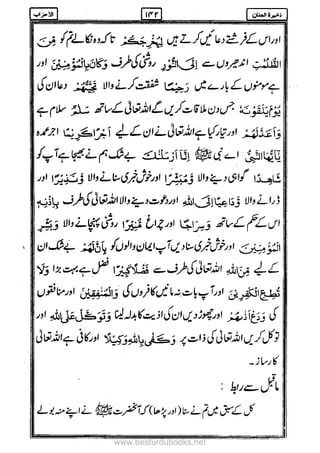 الاحزاب ۱۴۲ ذخیرۃ الجنان
اور اس کے فرشتے دعائیں کرتے ہیں لِيُخْرِجَكُمْ تاکہ وہ نکالے تم کو مِّنَ
الظُّلُمٰتِ اندھیروں سے اِلَى النُّوْرِ روشنی کی طرف وَكَانَ بِالْمُؤْمِنِيْنَ اور
ہے مومنوں کے بارے میں رَحِيْمًا شفقت کرنے والا تَحِيَّتُهُمْ دعا ان کی
يَوْمَ يَلْقَوْنَهٗ جس دن ملاقات کریں گے اللہ تعالیٰ کے ساتھ سَلٰمٌ سلام ہے
وَاَعَدَّ لَهُمْ اور تیار کیا ہے اللہ تعالیٰ نے ان کے لیے اَجْرًا كَرِيْمًا اجر عمدہ
يٰٓاَيُّهَا النَّبِىُّ اے نبی ﷺ اِنَّآ اَرْسَلْنٰكَ بے شک ہم نے بھیجا ہے آپ کو
شَاهِدًا گواہی دینے والا وَّمُبَشِّرًا اور خوش خبری سنانے والا وَّنَذِيْرًا اور
ڈرانے والا وَّدَاعِيًا اِلَى اللّٰهِ اور دعوت دینے والا اللہ تعالیٰ کی طرف بِاِذْنِهٖ
اس کے حکم کے ساتھ وَسِرَاجًا اور چراغ مُّنِيْرًا روشنی پہنچانے والا وَبَشِّرِ
الْمُؤْمِنِيْنَ اور خوش خبری سنا دیں آپ ایمان والوں کو بِاَنَّ لَهُمْ بے شک ان
کے لیے مِّنَ اللّٰهِ اللہ تعالیٰ کی طرف سے فَضْلًا كَبِيْرًا فضل ہے بہت بڑا وَلَا
تُطِعِ الْكٰفِرِيْنَ اور آپ بات نہ مانیں کافروں کی وَالْمُنٰفِقِيْنَ اور منافقوں
کی وَدَعْ اَذٰىهُمْ اور چھوڑ دیں ان کی اذیت کا بدلہ لینا وَتَوَكَّلْ عَلَى اللّٰهِ اور
توکل کریں اللہ تعالیٰ کی ذات پر وَكَفٰى بِاللّٰهِ وَكِيْلًا اور کافی ہے اللہ تعالیٰ
کارساز۔
ماقبل سے ربط :
کل کے سبق میں تم نے سنا (اور پڑھا) کہ آنحضرت ﷺ نے اپنے منہ بولے
www.besturdubooks.net